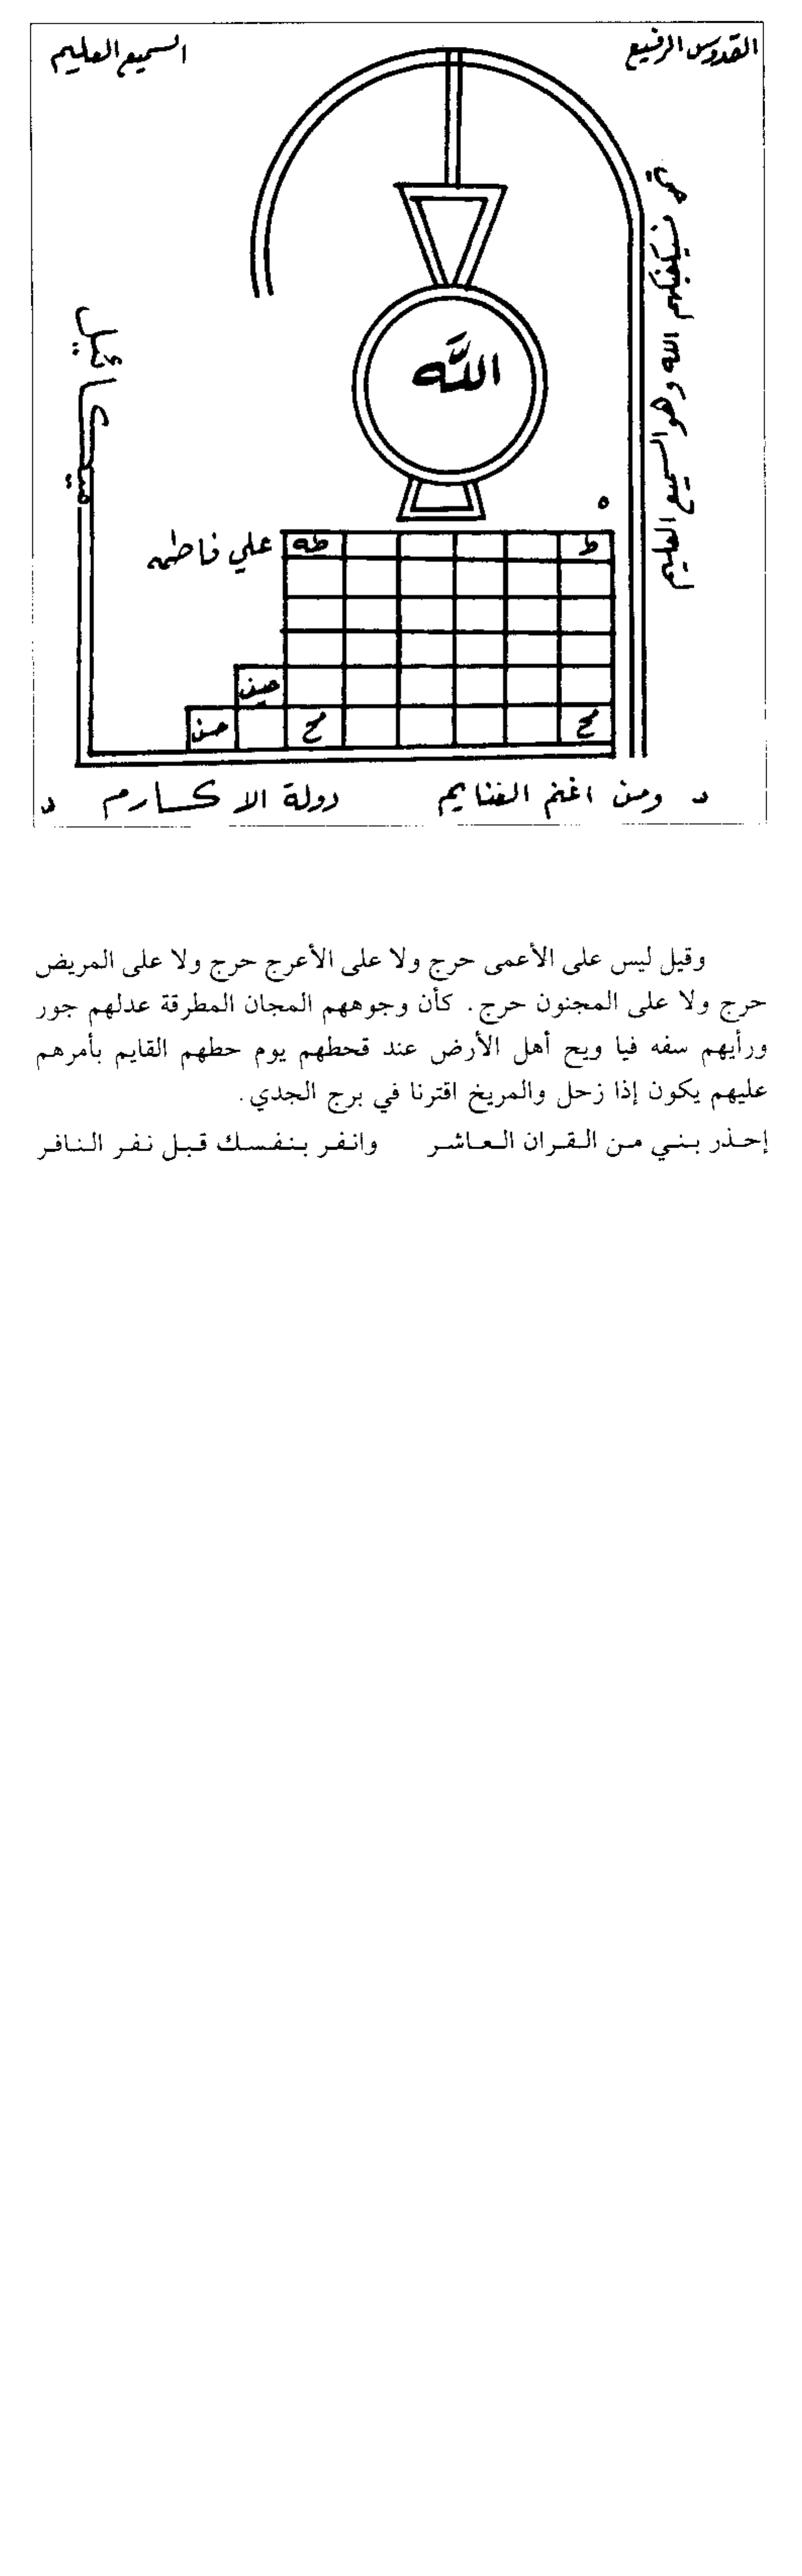 القدوس الرفيع
السميع العليم
فسيكفيكهم الله وهو السميع العليم
ميكائيل
الله
ه
ط
طه
علي فاطمه
حسين
ح
ح
حسن
د ومن اغنم الغنايم
دولة الاكارم د
وقيل ليس على الأعمى حرج ولا على الأعرج حرج ولا على المريض
حرج ولا على المجنون حرج. كأن وجوههم المجان المطرقة عدلهم جور
ورأيهم سفه فيا ويح أهل الأرض عند قحطهم يوم حطهم القايم بأمرهم
عليهم يكون إذا زحل والمريخ اقترنا في برج الجدي.
إحذر بني من القران العاشر وانفر بنفسك قبل نفر النافر